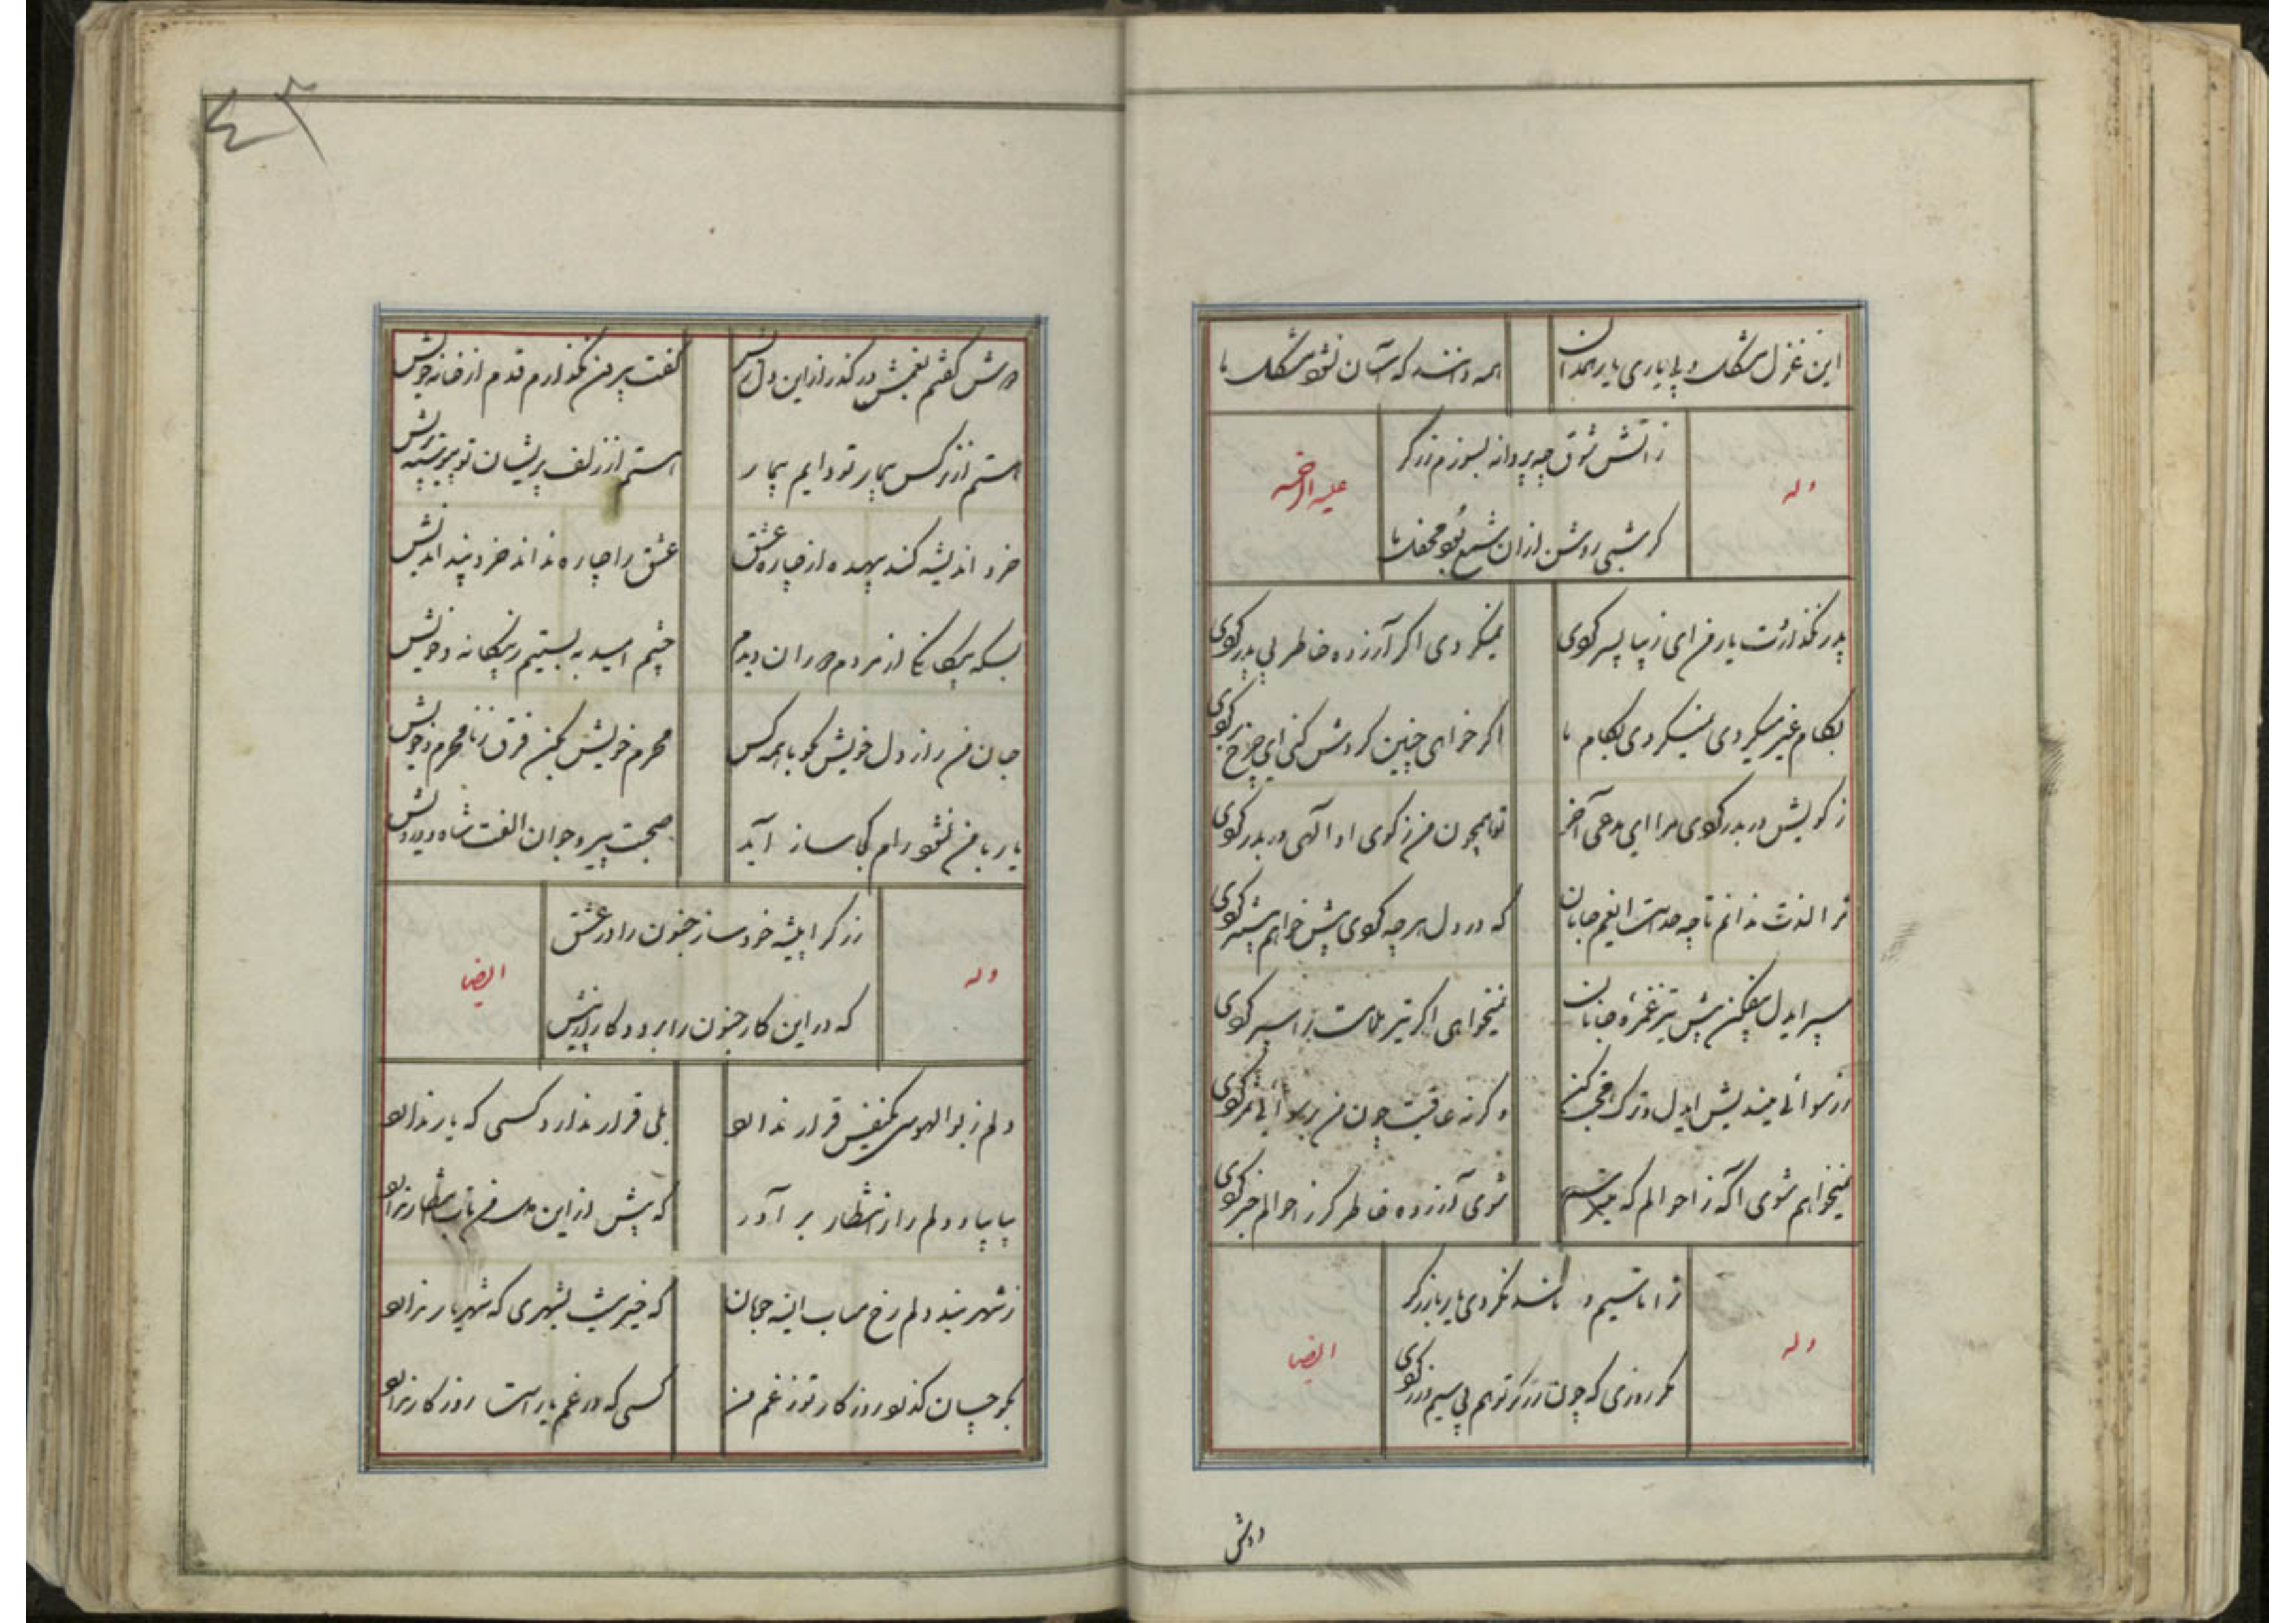 این غزل مشکل و بی یاری یار همدان
همه دانند که آسان نشود مشکل ما
وله
علیه الرحمه
ز آتش شوق چه پروانه بسوزم زرگر
گر شبی روشن ازان شمع بود محفل ما
پدر نگذاردت یار من ای زیبا پسر گوی
نمیکردی اگر آزرده خاطر بی پدر گوی
بکام غیر میکردی نمیکردی بکام ما
اگر خواهی چنین گردش کنی ای چرخ بر گوی
ز کویش در بدر گوی مرا ای مدعی آخر
تو همچون من ز کوی او الهی در بدر گوی
ترا لذت ندانم تا چه حد است ایغم جانان
که در دل هر چه گوی بیش خواهم بیشتر گوی
سپر ایدل بیفکن پیش تیر غمزه جانان
نمیخواهی اگر تیر ملامت را سپر گوی
ز رسوائی میندیش ایدل و ترک محبت کن
وگرنه عاقبت چون من برسوائی سمر گوی
نمیخواهم شوی آگه ز احوالم که میترسم
شوی آزرده خاطر گر ز احوالم خبر گوی
وله
ایضا
ترا تا سیم و باشد نکردی یار با زرگر
مگر روزی که چون زرگر تو هم بی سیم و زر گوی
دوش
دوش گفتم بغمش درگذر از این دل ریش
گفت بیرون نگذارم قدم از خانه خویش
هستم از نرگس بیمار تو دایم بیمار
هستم از زلف پریشان تو پیوسته پریش
خرد اندیشه کند بیهده از چاره عشق
عشق را چاره نداند خرد چند اندیش
بسکه بیگانگی از مردم دوران دیدم
چشم امید به بستیم ز بیگانه و خویش
جان من راز دل خویش مگو با همه کس
محرم خویش بکن فرق ز نامحرم خویش
یار با من نشود رام کجا ساز آید
صحبت پیر و جوان الفت شاه و درویش
وله
ایضا
زرگرا پیشه خود ساز جنون را در عشق
که در این کار جنون را برود کار از پیش
دلم ز بوالهوسی یکنفس قرار ندارد
بلی قرار ندارد کسی که یار ندارد
بیا بیا و دلم را ز انتظار بر آور
که بیش از این دل من تاب انتظار ندارد
ز شهر بند دلم رخ متاب ایشه خوبان
که خیر نیست بشهری که شهریار ندارد
بگو چسان گذرد روزگار تو ز غم من
کسی که در غم یار است روزگار ندارد